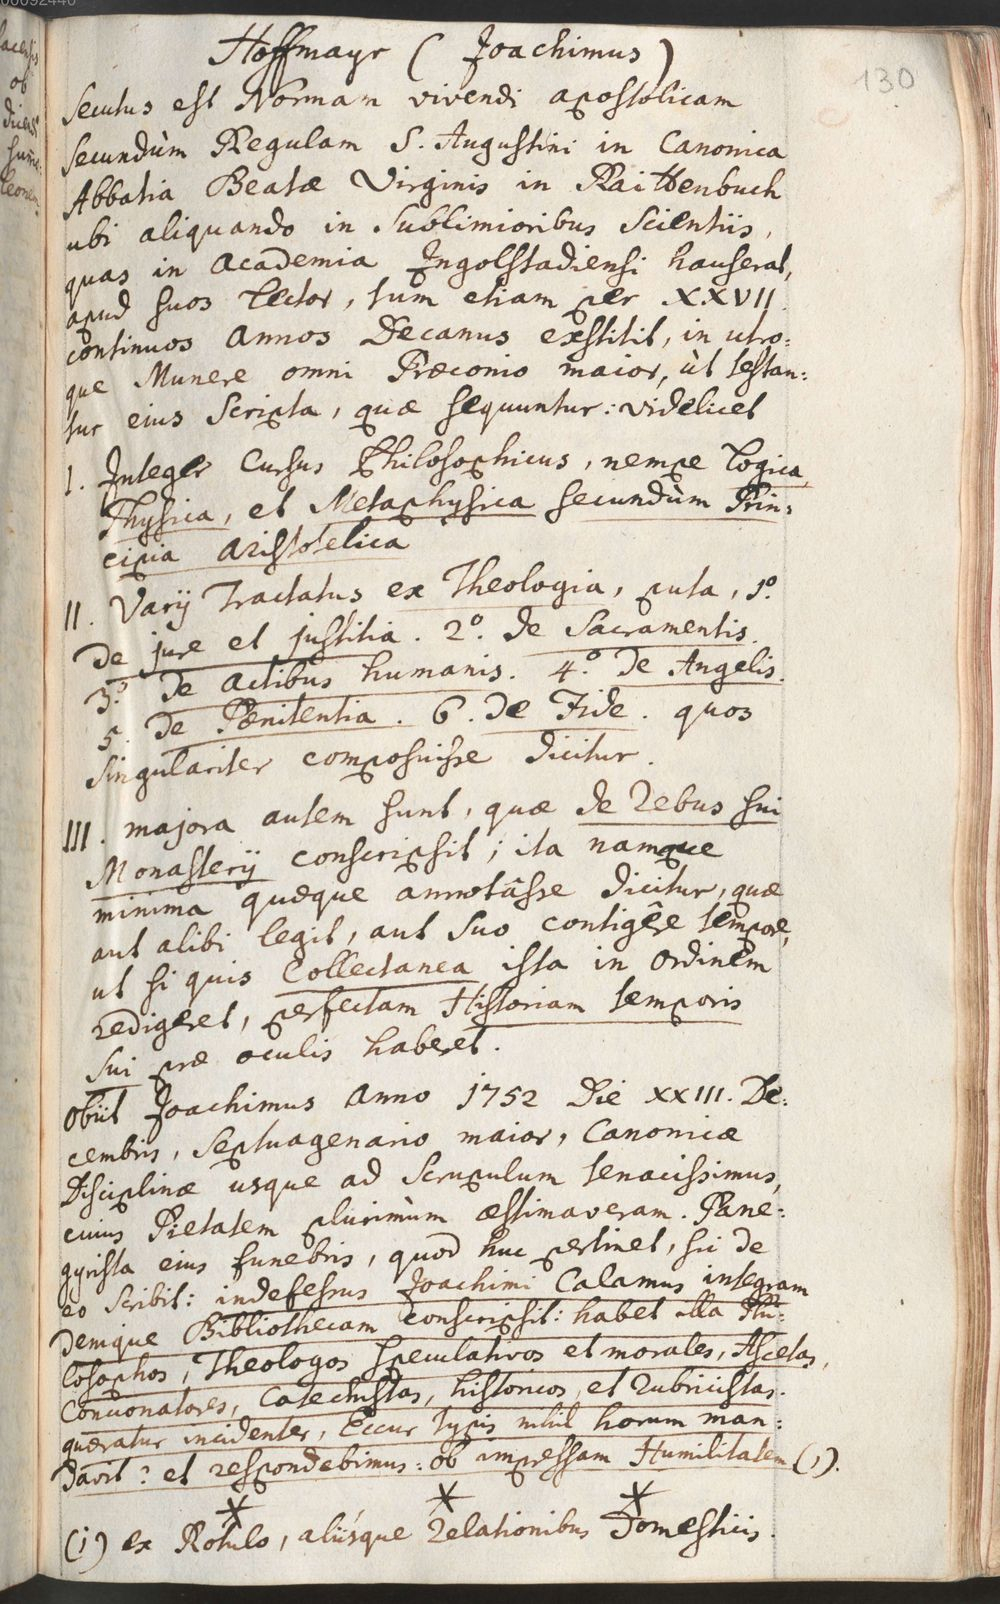 00092440
130
Hoffmayr (Joachimus)
secutus est Normam vivendi apostolicam
secundùm Regulam S. Augustini in Canonica
Abbatia Beatæ Virginis in Raittenbuch
ubi aliquando in sublimioribus scientiis,
quas in Academia Ingolstadiensi hauserat,
apud suos Lector, tum etiam per XXVII
continuos Annos Decanus exstitit, in utro:
que Munere omni Præconio maior, ùt testan:
tur eius Scripta, quæ sequuntur: videlicet
I. Integer Cursus Philosophicus, nempe Logica,
Physica, et Metaphysica secundùm Prin:
cipia Aristotelica
II. Varij Tractatus ex Theologia, puta, 1º.
De jure et justitia. 2º. de Sacramentis.
3º. de Actibus humanis. 4º. de Angelis.
5. De Pœnitentia. 6. de Fide. quos
singulariter composuisse dicitur.
III. majora autem sunt, quæ de rebus sui
Monasterij conscripsit; ita namque
minima quæque annotâsse dicitur, quæ
aut alibi legit, aut suo contigêre tempore,
ut si quis Collectanea ista in ordinem
redigeret, perfectam Historiam temporis
sui præ oculis haberet.
Obiit Joachimus Anno 1752 Die XXIII. De:
cembris, septuagenario maior, Canonicæ
Disciplinæ usque ad scrupulum tenacissimus,
cuius Pietatem plurimùm æstimaveram. Pane:
gyrista eius funebris, quod huc pertinet, sic de
eo scribit: indefessus Joachimi Calamus integram
denique Bibliothecam conscripsit: habet illa Phi:
losophos, Theologos speculativos et morales, Ascetas,
Concionatores, Catechistas, historicos, et Rubricistas.
quæratur incidenter, Eccur typis nihil horum man:
davit? et respondebimus: ob impressam Humilitatem (1).
* * *
(1) ex Rotulo, aliisque relationibus Domesticis.